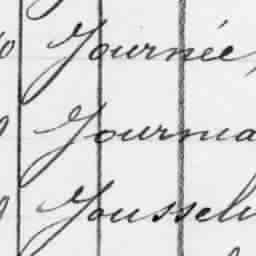 Journée,
Journa
Jousseli